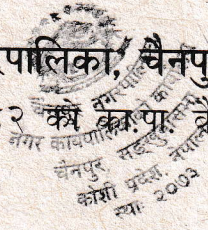 रपालिका, चैनपु
२ को का.पा. बै
चैनपुर नगरपालिका
नगर कार्यपालिकाको कार्यालय
चैनपुर, सङ्खुवासभा
कोशी प्रदेश, नेपाल
स्था: २०७३